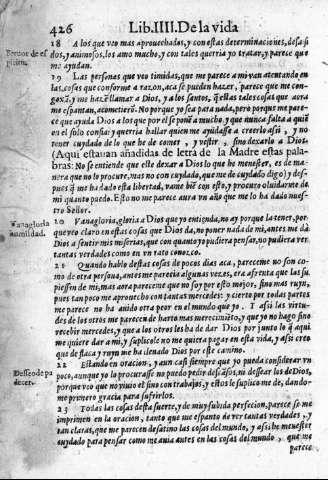 426 Lib. IIII. De la vida
18 A los que veo mas aprouechados, y con estas determinaciones, desasi
dos, y animosos, los amo mucho, y con tales querria yo tratar, y parece que
me ayudan.
Feruor de es
piritu.
19 Las personas que veo timidas, que me parece a mi van atentando en
las cosas, que conforme a razon, aca se pueden hazer, parece que me con-
goxã, y me hazẽ llamar a Dios, y a los santos, q̃ estas tales cosas que aora
me espantan, acometierõ. No porque yo sea para nada, pero porque me pare-
ce que ayuda Dios a los que por el se ponẽ a mucho, y que nunca falta a quiẽ
en el solo confia: y querria hallar quien me ayudasse a creerlo assi, y no
tener cuydado de lo que he de comer, y vestir, sino dexarlo a Dios.
(Aqui estauan añadidas de letra de la Madre estas pala-
bras: No se entiende que este dexar a Dios lo que he menester, es de ma-
nera que no lo procure, mas no con cuydado, que me dè cuydado digo) y des-
pues q̃ me ha dado esta libertad, vame biẽ con esto, y procuro oluidarme de
mi quanto puedo. Esto no me parece aura vn año que me lo ha dado nues-
tro Señor.
Vanagloria
humildad.
20 Vanagloria, gloria a Dios que yo entienda, no ay porque la tener, por-
que veo claro en estas cosas que Dios da, no poner nada de mi, antes me dà
Dios a sentir mis miserias, que con quanto yo pudiera pensar, no pudiera ver
tantas verdades como en vn rato conozco.
21 Quando hablo destas cosas de pocos dias aca, pareceme no son co-
mo de otra persona, antes me parecia algunas vezes, era afrenta que las su
piessen de mi, mas aora pareceme que no soy por esto mejor, sino mas ruyn,
pues tan poco me aprouecho con tantas mercedes: y cierto por todas partes
me parece no ha auido otra peor en el mundo que yo. Y assi las virtu-
des de los otros me parecen de harto mas merecimiẽto, y que yo no hago sino
recebir mercedes, y que a los otros les ha de dar Dios por junto lo q̃ aqui
me quiere dar a mi, y suplicole no me quiera pagar en esta vida, y assi creo
que de flaca y ruyn me ha lleuado Dios por este camino.
Desseo de pa
decer.
22 Estando en oracion, y aun casi siempre que yo pueda considerar vn
poco, aunque yo lo procurasse no puedo pedir descãsos, ni dessear los de Dios,
porque veo que no viuio el sino con trabajos, y estos le suplico me dè, dando-
me primero gracia para sufrirlos.
23 Todas las cosas desta suerte, y de muy subida perfecion, parece se me
imprimen en la oracion, tanto que me espanto de ver tantas verdades, y
tan claras, que me parecen desatino las cosas del mundo, y assi he menester
cuydado para pensar como me auia antes en las cosas del mundo, que me
parece